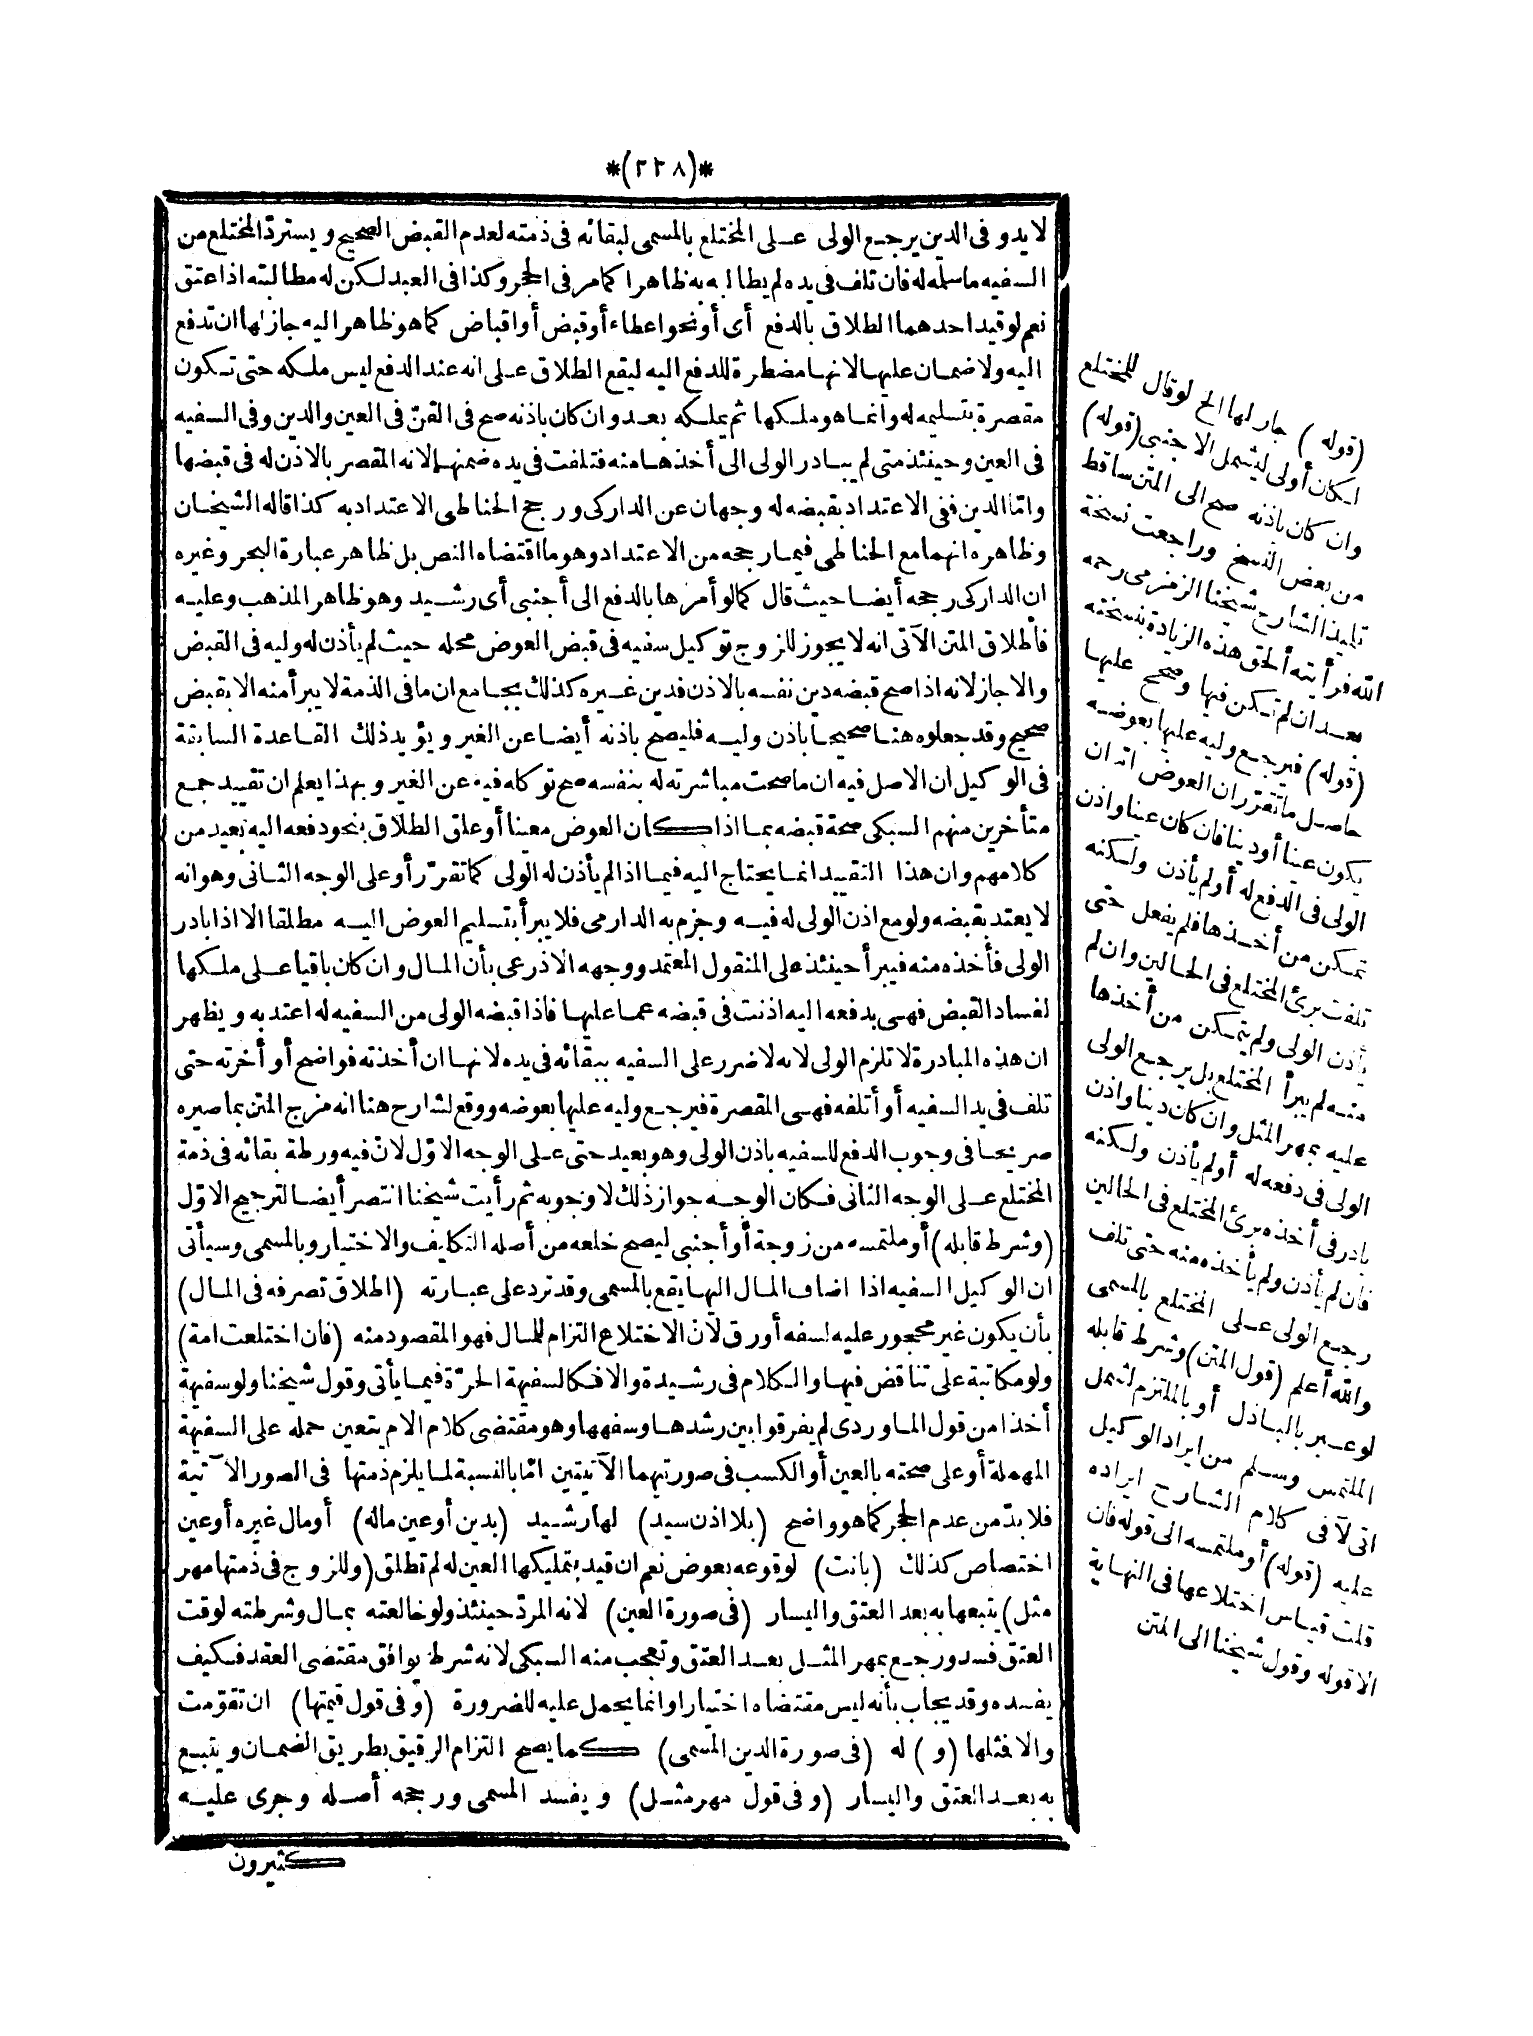 *(٢٢٨)*
لا يدو فى الدين يرجع الولى على المختلع بالمسمى لبقائه فى ذمته لعدم القبض الصحيح ويستردّ المختلع من
السفيه ماسلمه له فان تلف فى يده لم يطالبه به ظاهرا كما مر فى الحجر وكذا فى العبد لكن له مطالبته اذا عتق
نعم لو قيد احدهما الطلاق بالدفع أى أو نحو اعطاء أو قبض أو اقباض كما هو ظاهر اليه جاز لها ان تدفع
اليه ولا ضمان عليها لانها مضطرة للدفع اليه ليقع الطلاق على انه عند الدفع ليس ملكه حتى تكون
مقصرة بتسليمه له وانما هو ملكها ثم يملكه بعد وان كان باذنه صح فى القنّ فى العين والدين وفى السفيه
فى العين وحينئذ متى لم يبادر الولى الى أخذها منه فتلفت فى يده ضمنها لانه المقصر بالاذن له فى قبضها
وامّا الدين ففى الاعتداد بقبضه له وجهان عن الداركى ورجح الحناطى الاعتداد به كذا قاله الشيخان
وظاهره انهما مع الحناطى فيما رجحه من الاعتداد وهو ما اقتضاه النص بل ظاهر عبارة البحر وغيره
ان الداركى رجحه أيضا حيث قال كما لو أمرها بالدفع الى أجنبى أى رشيد وهو ظاهر المذهب وعليه
فأطلاق المتن الآتى انه لا يجوز للزوج توكيل سفيه فى قبض العوض محله حيث لم يأذن له وليه فى القبض
والا جاز لانه اذا صح قبضه دين نفسه بالاذن فدين غيره كذلك بجامع ان ما فى الذمة لا يبرأ منه الا بقبض
صحيح وقد جعلوه هنا صحيحا باذن وليه فليصح باذنه أيضا عن الغير ويؤيد ذلك القاعدة السابقة
فى الوكيل ان الاصل فيه ان ما صحت مباشرته له بنفسه صح توكله فيه عن الغير وبهذا يعلم ان تقييد جمع
متأخرين منهم السبكى صحة قبضه بما اذا كان العوض معينا أو علق الطلاق بنحو دفعه اليه بعيد من
كلامهم وان هذا التقييد انما يحتاج اليه فيما اذا لم يأذن له الولى كما تقرّر أو على الوجه الثانى وهو انه
لا يعتد بقبضه ولو مع اذن الولى له فيه وجزم به الدارمى فلا يبرأ بتسليم العوض اليه مطلقا الا اذا بادر
الولى فأخذه منه فيبرأ حينئذ على المنقول المعتمد ووجهه الاذرعى بأن المال وان كان باقيا على ملكها
لفساد القبض فهى بدفعه اليه اذنت فى قبضه عما عليها فاذا قبضه الولى من السفيه له اعتد به ويظهر
ان هذه المبادرة لا تلزم الولى لانه لا ضرر على السفيه ببقائه فى يده لانها ان أخذته فواضح أو أخرته حتى
تلف فى يد السفيه أو أتلفه فهى المقصرة فيرجع وليه عليها بعوضه ووقع لشارح هنا انه مزج المتن بما صيره
صريحا فى وجوب الدفع للسفيه باذن الولى وهو بعيد حتى على الوجه الاوّل لانّ فيه ورطة بقائه فى ذمة
المختلع على الوجه الثانى فكان الوجه جواز ذلك لا وجوبه ثم رأيت شيخنا انتصر أيضا لترجيح الاوّل
(وشرط قابله) أو ملتمسه من زوجة أو أجنبى ليصح خلعه من أصله التكليف والاختيار وبالمسمى وسيأتى
ان الوكيل السفيه اذا اضاف المال اليها يقع بالمسمى وقد ترد على عبارته (اطلاق تصرفه فى المال)
بأن يكون غير محجور عليه لسفه أو رق لانّ الاختلاع التزام للمال فهو المقصود منه (فان اختلعت امة)
ولو مكاتبة على تناقض فيها والكلام فى رشيدة والا فكالسفيهة الحرّة فيما يأتى وقول شيخنا ولو سفيهة
أخذا من قول الماوردى لم يفرقوا بين رشدها وسفهها وهو مقتضى كلام الام يتعين حمله على السفيهة
المهملة أو على صحته بالعين أو الكسب فى صورتيهما الآتيتين امّا بالنسبة لما يلزم ذمتها فى الصور الآتية
فلا بدّ من عدم الحجر كما هو واضح (بلا اذن سيد) لها رشيد (بدين أو عين ماله) أو مال غيره أو عين
اختصاص كذلك (بانت) لوقوعه بعوض نعم ان قيد بتمليكها العين له لم تطلق (وللزوج فى ذمتها مهر
مثل) يتبعها به بعد العتق واليسار (فى صورة العين) لانه المردّ حينئذ ولو خالعته بمال وشرطته لوقت
العتق فسد ورجع بمهر المثل بعد العتق وتعجب منه السبكى لانه شرط يوافق مقتضى العقد فكيف
يفسده وقد يجاب بأنه ليس مقتضاه اختيارا وانما يحمل عليه للضرورة (وفى قول قيمتها) ان تقوّمت
والا فمثلها (و) له (فى صورة الدين المسمى) كما يصح التزام الرقيق بطريق الضمان ويتبع
به بعد العتق واليسار (وفى قول مهر مثل) ويفسد المسمى ورجحه أصله وجرى عليه
كثيرون
(قوله) جاز لها الخ لو قال للمختلع
لكان أولى ليشمل الاجنبى (قوله)
وان كان باذنه صح الى المتن ساقط
من بعض النسخ وراجعت نسخة
تلميذ الشارح شيخنا الزمزمى رحمه
الله فرأيته ألحق هذه الزيادة بنسخته
بعد ان لم تكن فيها وصحح عليها
(قوله) فيرجع وليه عليها بعوضه
حاصل ما تقرّر ان العوض اما ان
يكون عينا أو دينا فان كان عينا واذن
الولى فى الدفع له أو لم يأذن ولكنه
تمكن من أخذها فلم يفعل حتى
تلفت برئ المختلع فى الحالين وان لم
يأذن الولى ولم يتمكن من أخذها
منه لم يبرأ المختلع بل يرجع الولى
عليه بمهر المثل وان كان دينا واذن
الولى فى دفعه له أو لم يأذن ولكنه
بادر فى أخذه برئ المختلع فى الحالين
فان لم يأذن ولم يأخذه منه حتى تلف
رجع الولى على المختلع بالمسمى
والله أعلم (قول المتن) وشرط قابله
لو عبر بالباذل أو بالملتزم لشمل
الملتمس وسلم من ايراد الوكيل
الآتى فى كلام الشارح ايراده
عليه (قوله) أو ملتمسه الى قوله فان
قلت قياس اختلاعها فى النهاية
الا قوله وقول شيخنا الى المتن